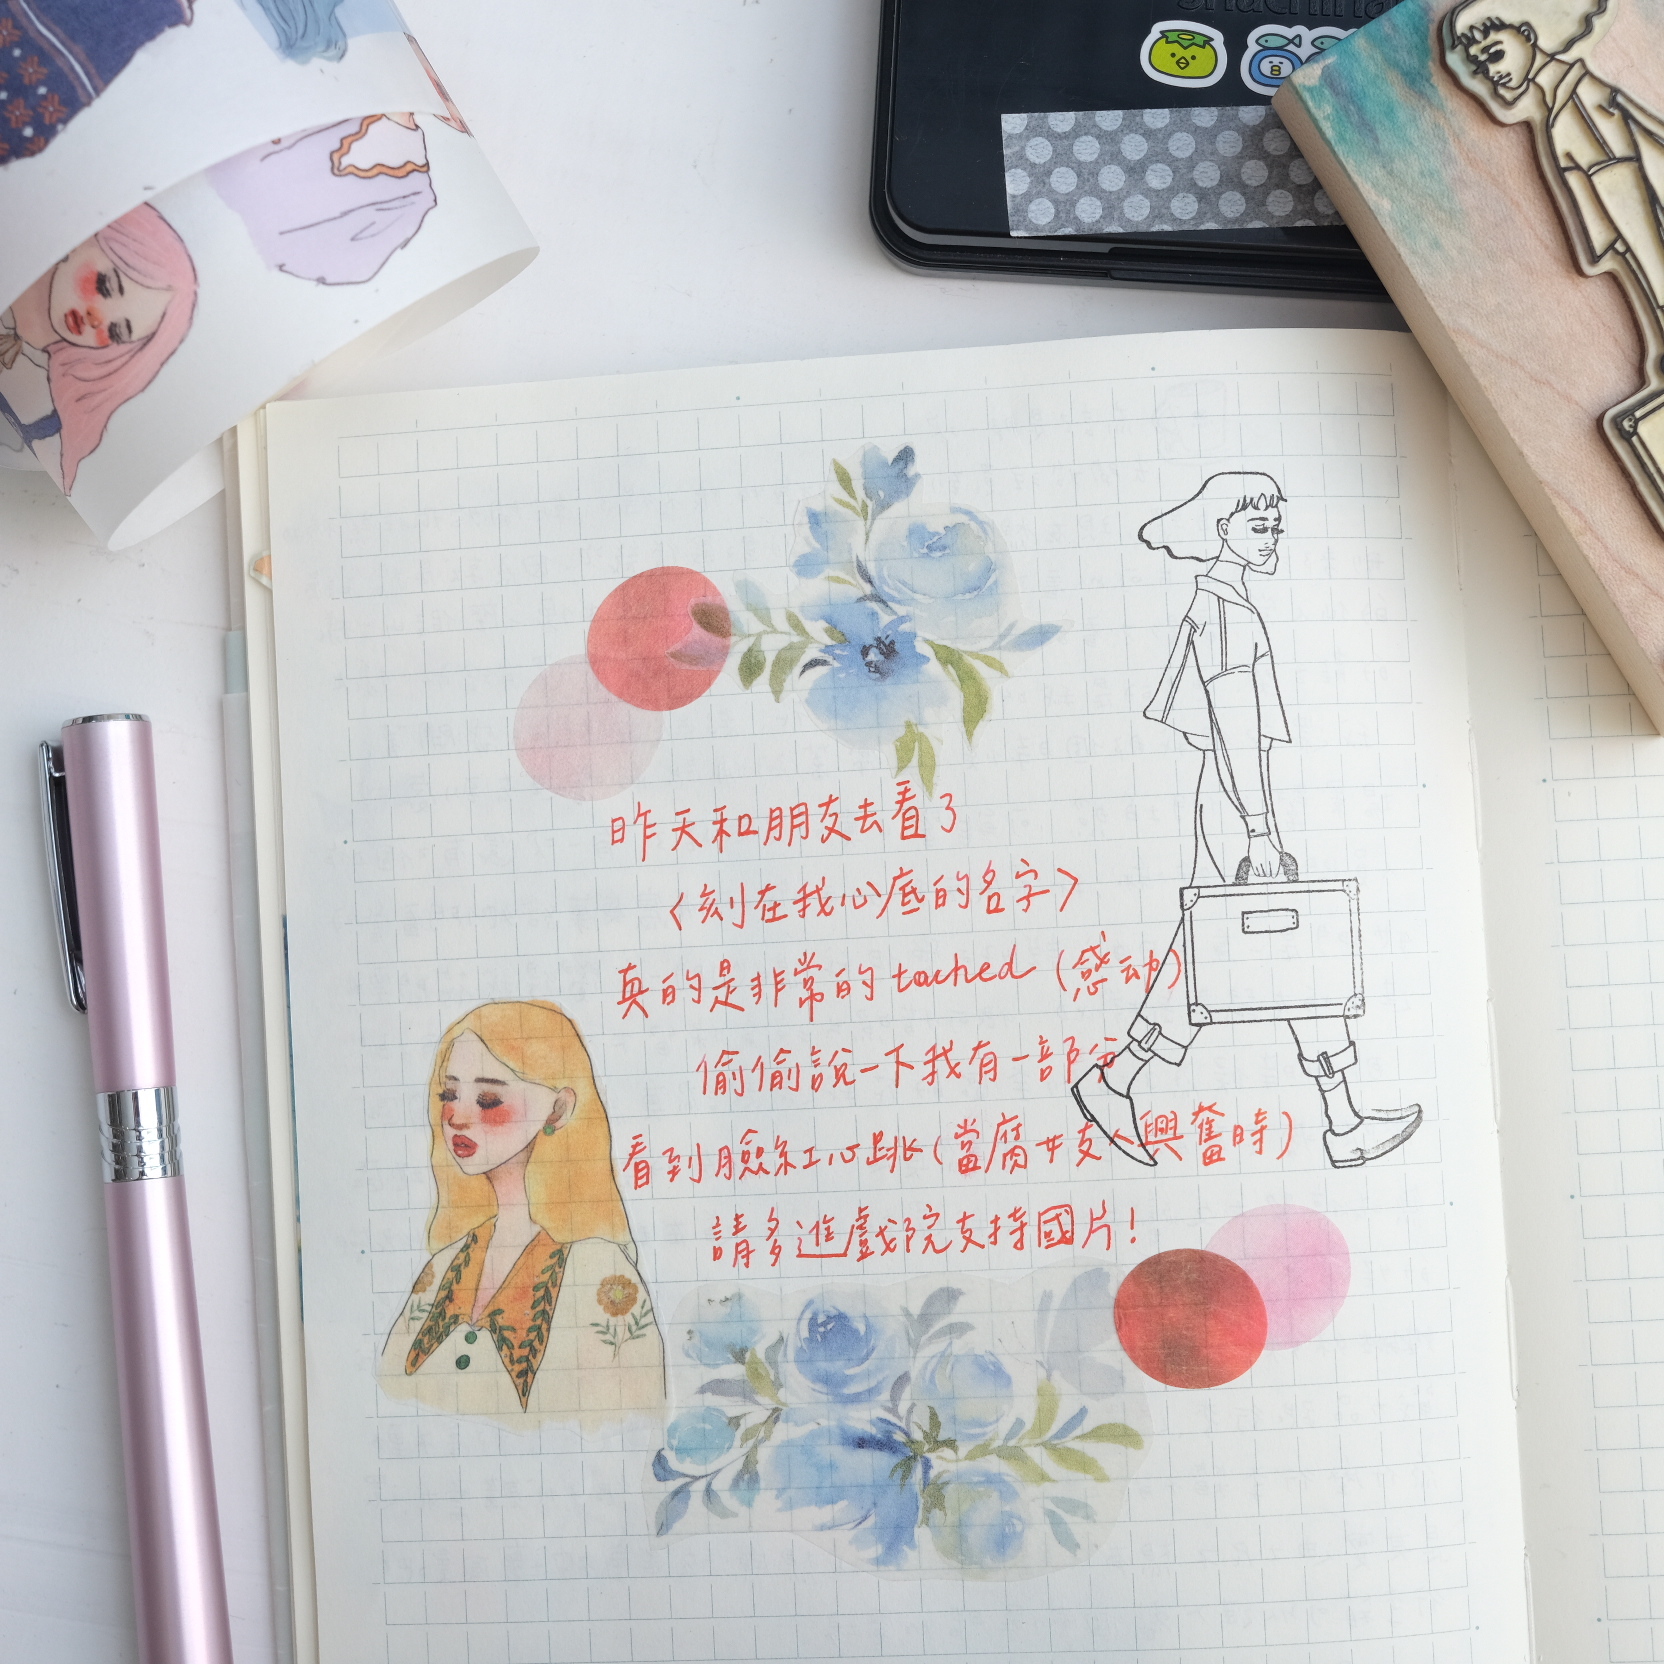 昨天和朋友去看了
〈刻在我心底的名字〉
真的是非常的 tached (感动)
偷偷說一下我有一部分
看到臉紅心跳(當腐女支人興奮時)
請多進戲院支持國片!